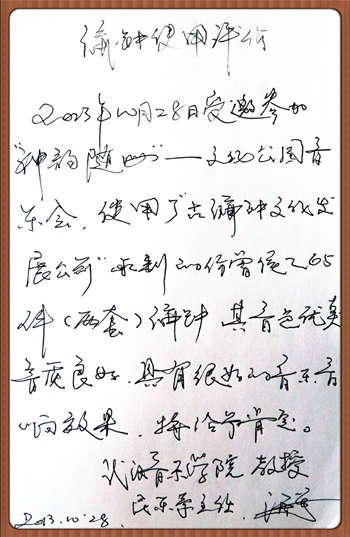 编钟使用评价
2013年10月28日受邀参加
"神韵随州"——文化公园音
乐会，使用了"古编钟文化发
展公司"承制的仿曾侯乙65
件（两套）编钟，其音色优美
音质良好，具有很好的音乐音
响效果，特给予肯定。
武汉音乐学院 教授
民乐系主任
2013.10.28.